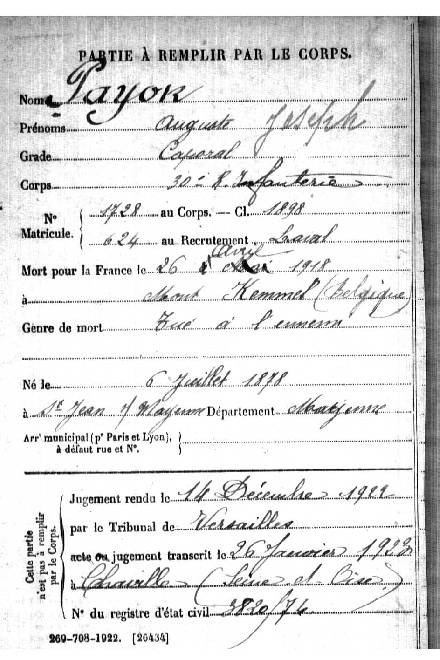 PARTIE À REMPLIR PAR LE CORPS.
Nom Payon
Prénoms Auguste Joseph
Grade Caporal
Corps 30e R. Infanterie
N° Matricule. { 1728 au Corps. — Cl. 1898
624 au Recrutement Laval
Mort pour la France le 26 Avril 1918
à Mont Kemmel (Belgique)
Genre de mort Tué à l'ennemi
Né le 6 Juillet 1878
à St Jean s/ Mayenne Département Mayenne
Arrt municipal (pr Paris et Lyon),
à défaut rue et N°.
Cette partie n'est pas à remplir par le Corps.
Jugement rendu le 14 Décembre 1922
par le Tribunal de Versailles
acte ou jugement transcrit le 26 Janvier 1923
à Chaville (Seine et Oise)
N° du registre d'état civil 3820/74
269-708-1922. [26434]